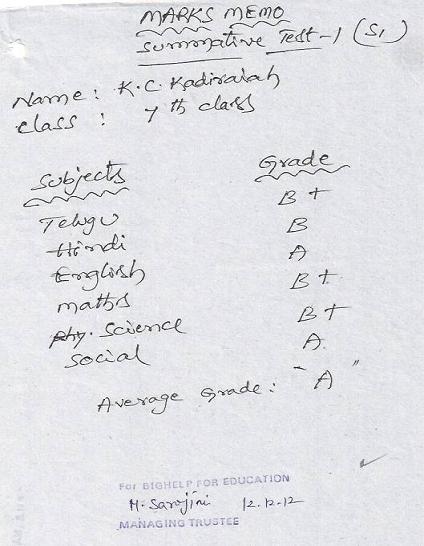 MARKS MEMO
Summative Test-1 (S1)
Name: K.C. Kadiraiah
class: 7th class
Subjects Grade
Telugu B+
Hindi B
English A
maths B+
phy. Science B+
Social A
Average Grade: "A"
For BIGHELP FOR EDUCATION
M. Sarojini 12.12.12
MANAGING TRUSTEE